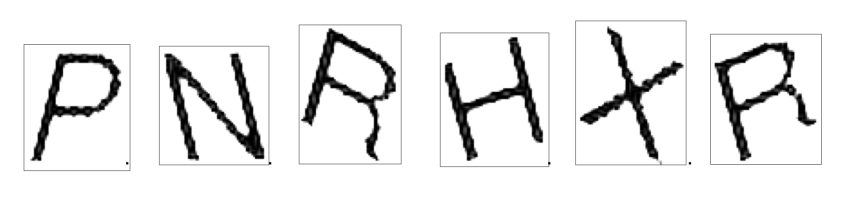 P N R H X R